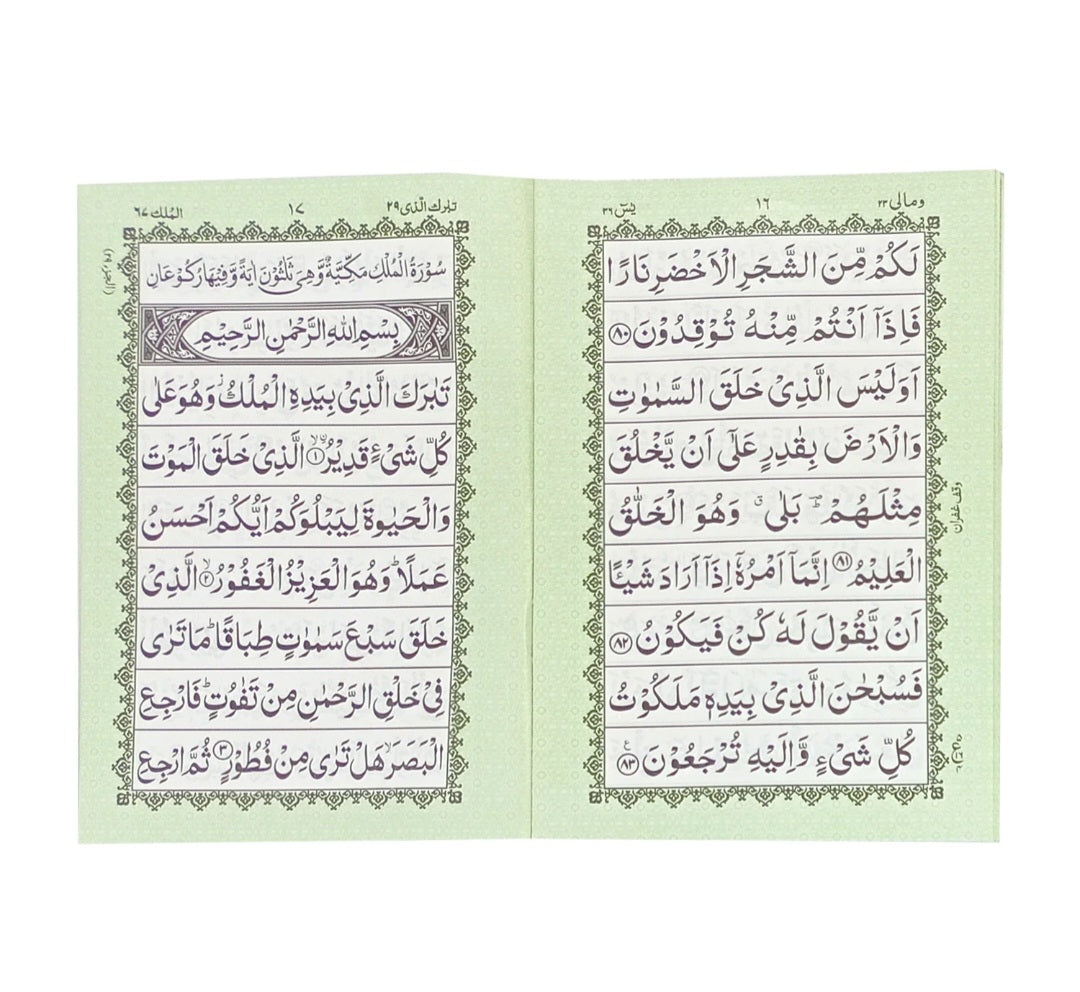 ومالی ٢٣
١٦
یٰسٓ ٣٦
لَكُمْ مِّنَ الشَّجَرِ الْاَخْضَرِ نَارًا
فَاِذَاۤ اَنْتُمْ مِّنْهُ تُوْقِدُوْنَ ٨٠
اَوَلَیْسَ الَّذِیْ خَلَقَ السَّمٰوٰتِ
وَالْاَرْضَ بِقٰدِرٍ عَلٰۤی اَنْ یَّخْلُقَ
مِثْلَهُمْ ؕ بَلٰی ۗ وَهُوَ الْخَلّٰقُ
الْعَلِیْمُ ٨١ اِنَّمَاۤ اَمْرُهٗۤ اِذَاۤ اَرَادَ شَیْـًٔا
اَنْ یَّقُوْلَ لَهٗ كُنْ فَیَكُوْنُ ٨٢
فَسُبْحٰنَ الَّذِیْ بِیَدِهٖ مَلَكُوْتُ
كُلِّ شَیْءٍ وَّاِلَیْهِ تُرْجَعُوْنَ ٨٣
وقف غفران
تبٰرك الذی ٢٩
١٧
الملك ٦٧
سُوْرَةُ الْمُلْكِ مَكِّیَّةٌ وَّهِیَ ثَلٰثُوْنَ اٰیَةً وَّفِیْهَا رُكُوْعَانِ
بِسْمِ اللهِ الرَّحْمٰنِ الرَّحِیْمِ
تَبٰرَكَ الَّذِیْ بِیَدِهِ الْمُلْكُ ؗ وَهُوَ عَلٰی
كُلِّ شَیْءٍ قَدِیْرُ ۙ ١ الَّذِیْ خَلَقَ الْمَوْتَ
وَالْحَیٰوةَ لِیَبْلُوَكُمْ اَیُّكُمْ اَحْسَنُ
عَمَلًا ؕ وَهُوَ الْعَزِیْزُ الْغَفُوْرُ ۙ ٢ الَّذِیْ
خَلَقَ سَبْعَ سَمٰوٰتٍ طِبَاقًا ؕ مَا تَرٰی
فِیْ خَلْقِ الرَّحْمٰنِ مِنْ تَفٰوُتٍ ؕ فَارْجِعِ
الْبَصَرَ ۙ هَلْ تَرٰی مِنْ فُطُوْرٍ ٣ ثُمَّ ارْجِعِ